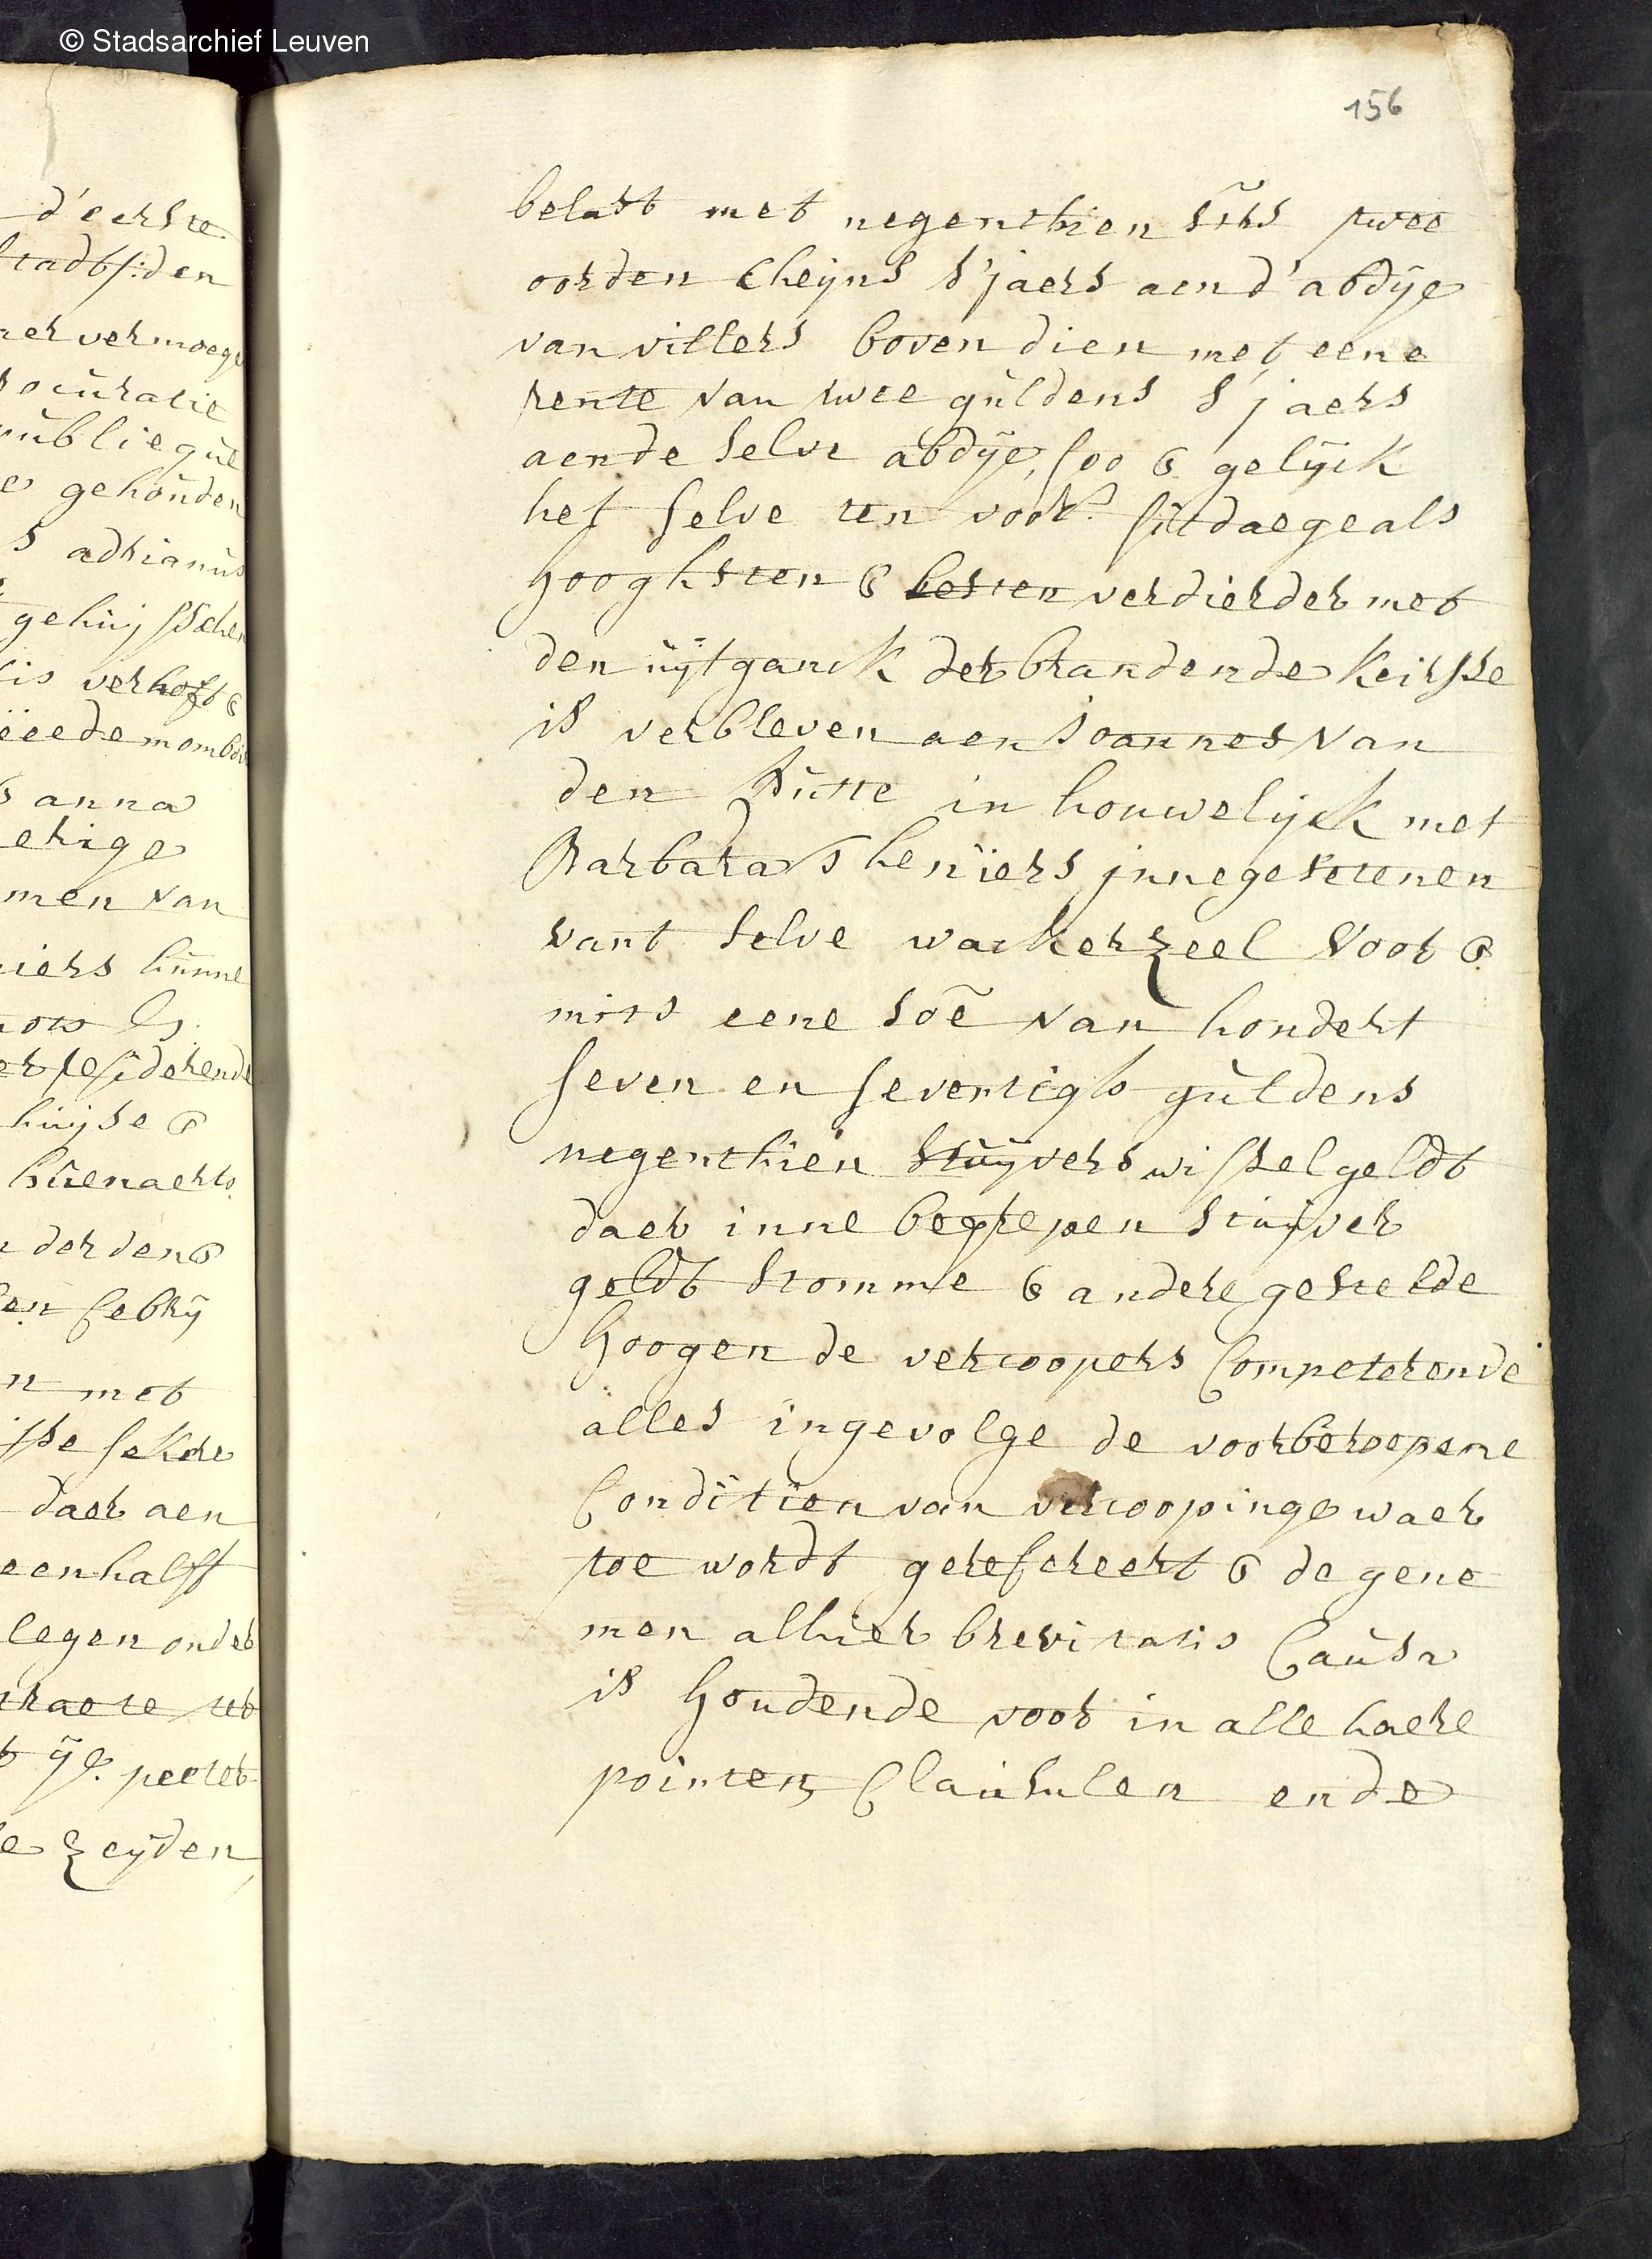 © Stadsarchief Leuven
156
d'eerste
stadts: den
ner vermoege
rocuratie
publieque
e gehouden
s adrianus
gehuijsschen
lis verhoft &
eede momboir
& anna
erige
men van
niers hunne
er residerende
huijse &
buenaerts
derden &
en febrij
n met
sse sekere
daer aen
een halff
legen onder
straete ter
t ije. peeter
e zeijden
belast met negenthien strs twee
oorden cheijns s'jaers aen d'abdije
van villers boven dien met eene
rente van twee guldens s'jaers
aende selve abdije, soo & gelijck
het selve ten voors. sitdaege als
hooghsten & lesten verdierder met
den uijtganck der brandende keirsse
is verbleven aen Joannes van
den Putte in houwelijck met
Barbara Sheniers innegesetenen
vant selve wackerzeel voor &
mits eene soē van hondert
seven en seventigh guldens
negenthien stuijvers wisselgeldt
daer inne begrepen stuijver
geldt stomme & andere gestelde
hoogen de vercoopers Competerende
alles ingevolge de voorberoepene
Conditien van vercoopinge waer
toe wordt gerefereert & de gene
men alhier brevitatis Causa
is houdende voor in alle haere
pointen Clausulen ende